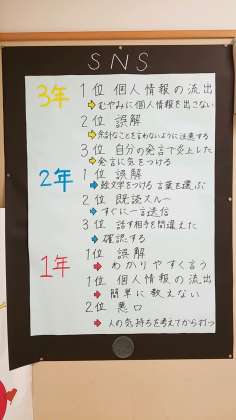 SNS
3年 1位 個人情報の流出
➡むやみに個人情報を出さない
2位 誤解
➡余計なことを言わないように注意する
3位 自分の発言で炎上した
➡発言に気をつける
2年 1位 誤解
➡絵文字をつける 言葉を選ぶ
2位 既読スルー
➡すぐに一言送信
3位 話す相手を間違えた
➡確認する
1年 1位 誤解
➡わかりやすく言う
1位 個人情報の流出
➡簡単に教えない
2位 悪口
➡人の気持ちを考えてから打つ